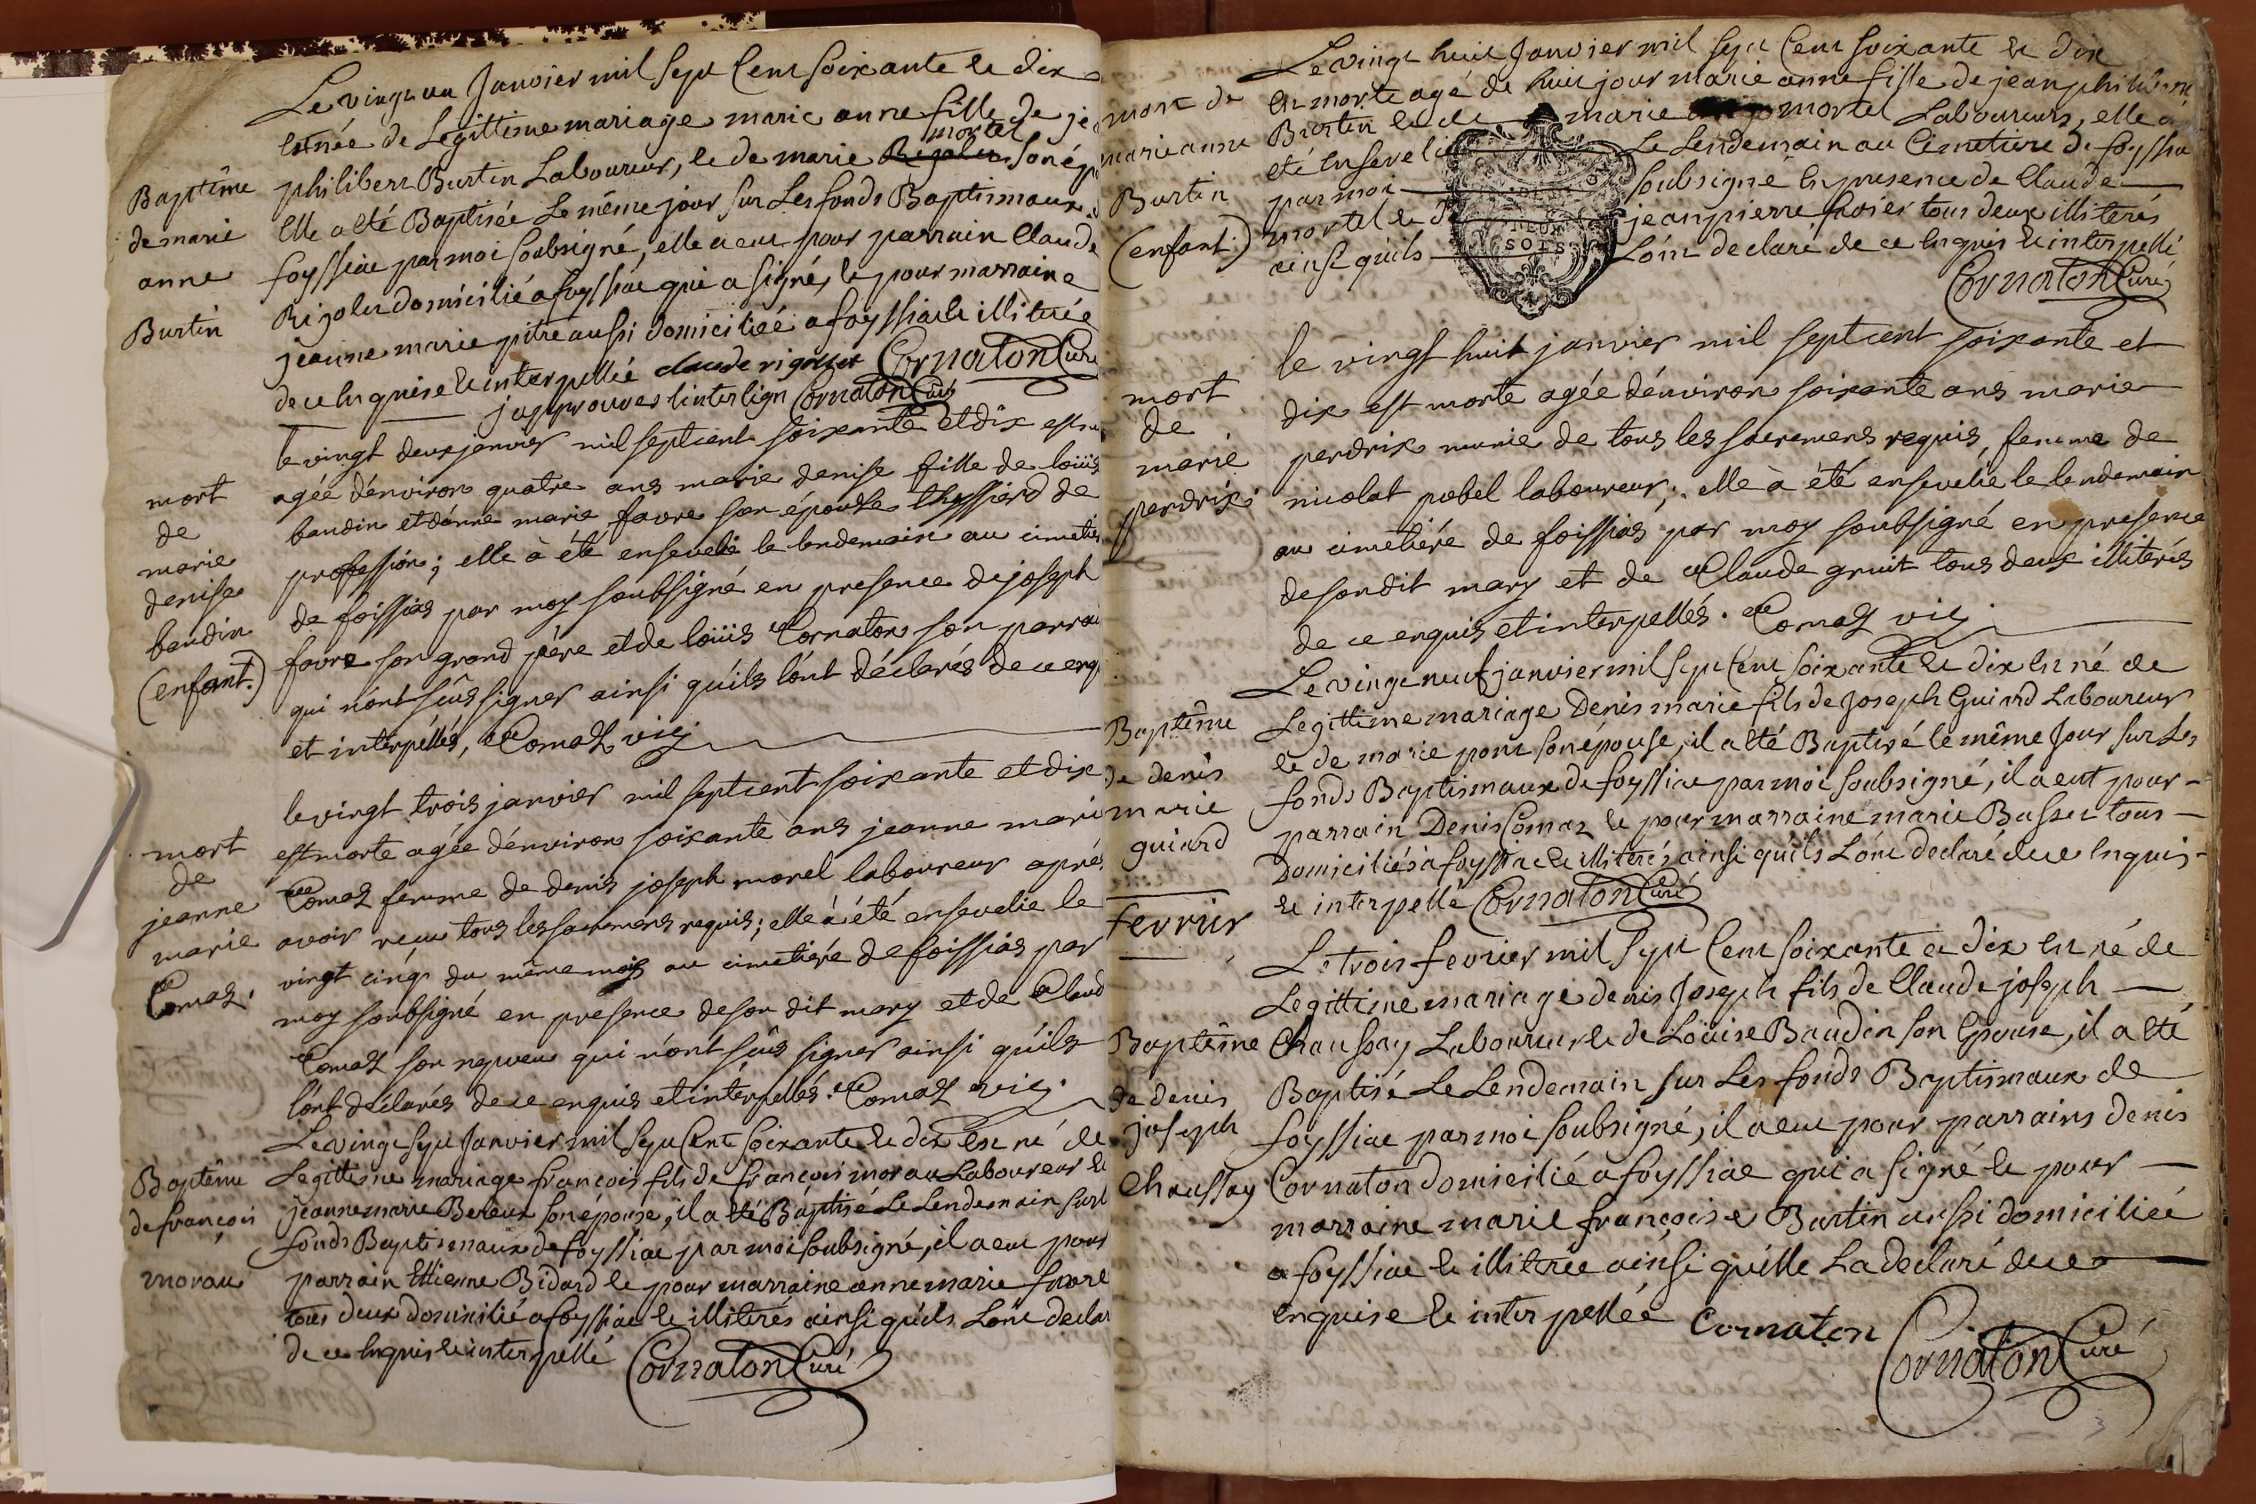 Le vingt un Janvier mil sept Cent soixante et dix
est née de Legittime mariage marie anne fille de je
philibert Burtin Laboureur, et de marie Rigolet mortel son ép
Elle a été Baptisée Le même jour sur Les fonds Baptismaux
foyssiac par moi soubsigné, elle a eut pour parrain Claude
Rigolet domicilié a foyssiac qui a signé, et pour marraine
jeanne marie pitre aussi domiciliée a foyssiac et illiterée
de ce enquise et interpellée claude rigollet Cornaton Curé
japprouves linterlign Cornaton Curé
Baptême
de marie
anne
Burtin
le vingt deux janvier mil septcent soixante et dix est
agée d'environ quatre ans marie denise fille de loüis
baudin et d'anne marie favre son épouse thyssierd de
profession; elle à été ensevelie le lendemain au cimetié
de foissias par moy soubsigné en presence de joseph
favre son grand pére et de loüis Cornaton son parrai
qui n'ont sûs signer ainsi qu'ils l'ont déclarés de ce enq
et interpéllés, Comas vic
mort
de
marie
denise
baudin
(enfant.)
le vingt trois janvier mil septcent soixante et dix
est morte agée d'environ soixante ans jeanne marie
Comas femme de denis joseph morel laboureur aprés
avoir reçu tous les sacremens requis; elle à été ensevelie le
vingt cinq du même mois au cimetiére de foissias par
moy soubsigné en presence de son dit mary et de Claud
Comas son nepveu qui n'ont sûs signer ainsi qu'ils
l'ont déclarés de ce enquis et intérpellés. Comas vic.
mort
de
jeanne
marie
Comas.
Le vingt sept Janvier mil sept Cent soixante et dix Est né de
Legittime mariage françois fils de françois morau Laboureur et
jeanne marie son épouse, il a été Baptisé Le Lendemain sur l
fonds Baptismaux de foyssiac par moi soubsigné, il a eut pour
parrain Ettienne Bidard et pour marraine anne marie favre
tous deux domicilié a foyssiac et illiterés ainsi qu'ils L'ont declar
de ce Enquis et interpellé Cornaton Curé
Baptême
de françois
morau
Le vingt huit Janvier mil sept Cent soixante et dix
Est morte agé de huit jour marie anne fille de jean philibert
Burtin et de marie mortel Laboureurs, elle a
été Enseveli Le Lendemain au Cimetiere de foyssia
par moi soubsigné En presence de Claude
mortel et d jean pierre tous deux illiterés
ainsi qu'ils L'ont declaré de ce Enquis et interpellé,
Cornaton Curé
DEUX
SOLS
mort de
marie anne
Burtin
(enfant.)
le vingt huit janvier mil septcent soixante et
dix est morte agée d'environ soixante ans marie
perdrix munie de tous les sacremens requis, femme de
nicolat pobel laboureur; elle à été ensevelie le lendemain
au cimetiéré de foissias par moy soubsigné en presence
de son dit mary et de Claude gruit tous deux illitérés
de ce enquis et interpellés. Comas vic.
mort
de
marie
perdrix.
Le vingt neuf janvier mil sept Cent soixante et dix Est né de
Legittime mariage Denis marie fils de Joseph Guiard Laboureur
et de marie pont son épouse, il a été Baptisé le même Jour sur Les
fonds Baptismaux de foyssiac par moi soubsigné, il a eut pour
parrain Denis Comas et pour marraine marie Basset tous
Domiciliés a foyssiac et illiterés ainsi qu'ils L'ont declaré de ce Enquis
et interpellé Cornaton Curé
Baptême
de denis
marie
guiard
fevrier
Le trois fevrier mil sept Cent soixante et dix Est né de
Legittime mariage denis Joseph fils de Claude joseph
Chaussay Laboureur et de Loüise Baudin son Epouse, il a été
Baptisé Le Lendemain sur Les fonds Baptismaux de
foyssiac par moi soubsigné, il a eut pour parrains denis
Cornaton domicilié a foyssiac qui a signé et pour
marraine marie françoise Burtin aussi domiciliée
a foyssiac et illiterée ainsi qu'elle La declaré de ce
enquise et interpellée Cornaton Cornaton Curé
Baptême
de denis
joseph
Chaussay
3